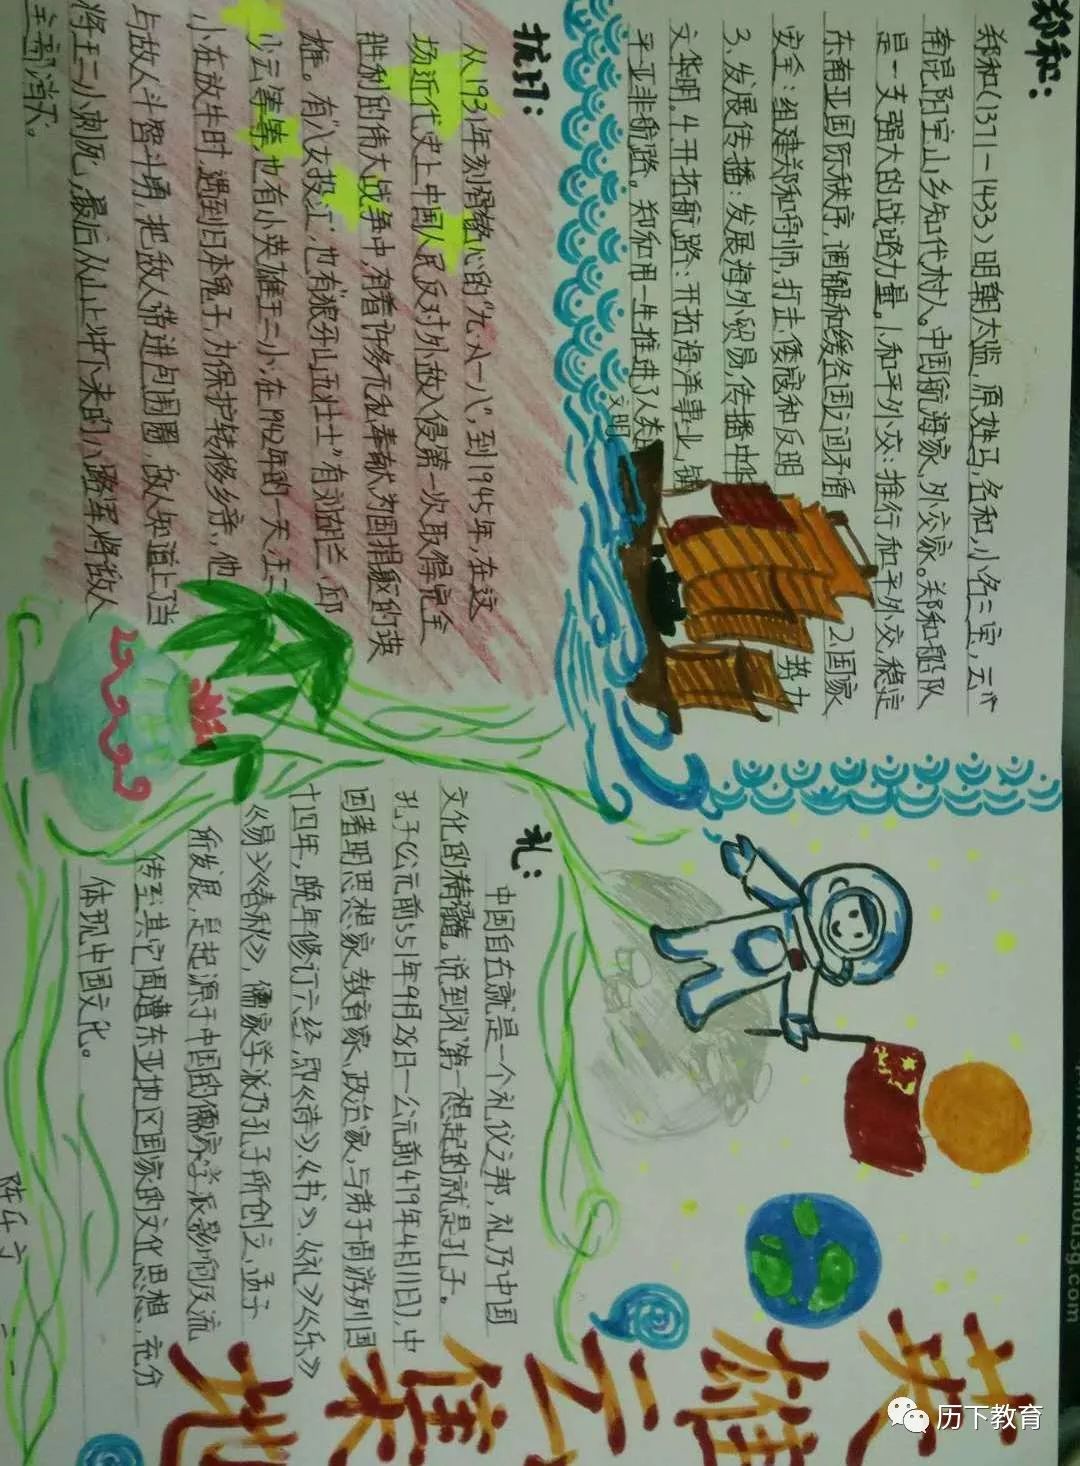 郑和:
郑和(1371-1433)明朝太监,原姓马,名和,小名三宝,云
南昆阳宝山乡知代村人。中国航海家、外交家。郑和船队
是一支强大的战略力量。1.和平外交:推行和平外交,稳定
东南亚国际秩序,调解和缓各国间矛盾 2.国家
安全:组建郑和舟师,打击倭寇和反明 势力
3.发展传播:发展海外贸易,传播中华
文华明。4.开拓航路:开拓海洋事业,铺
平亚非航路。郑和用一生推进了人类
文明
抗日:
从1931年刻骨铭心的“九一八”,到1945年,在这
场近代史上中国人民反对外敌入侵第一次取得完全
胜利的伟大战争中,有着许多无私奉献,为国捐躯的英
雄。有“八女投江”,也有“狼牙山五壮士”有刘胡兰,邱
少云等等,也有小英雄王二小,在1942年的一天,王二
小在放牛时,遇到日本鬼子,为保护转移乡亲,他
与敌人斗智斗勇,把敌人带进包围圈,敌人知道上当
将王二小刺死,最后从山上冲下来的八路军将敌人
全部消灭。
礼:
中国自古就是一个礼仪之邦,礼乃中国
文化的精髓。说到“礼”第一想起的就是孔子。
孔子(公元前551年9月28日—公元前479年4月11日),中
国著明思想家、教育家、政治家,与弟子周游列国
十四年,晚年修订六经,即《诗》、《书》、《礼》《乐》
《易》《春秋》,儒家学派乃孔子所创立,孟子
所发展,是起源于中国的儒家学派影响及流
传至其它周遭东亚地区国家的文化思想,充分
体现中国文化。
英雄
健
地
历下教育